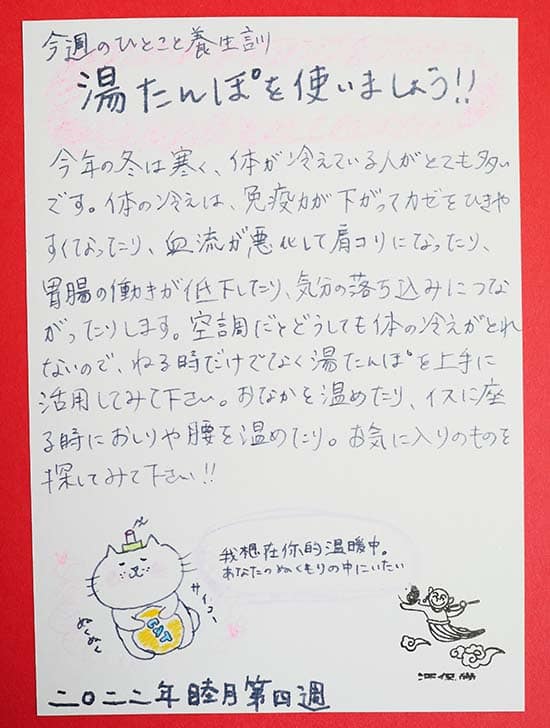 今週のひとこと養生訓
湯たんぽを使いましょう!!
今年の冬は寒く、体が冷えている人がとても多い
です。体の冷えは、免疫力が下がってカゼをひきや
すくなったり、血流が悪化して肩コリになったり、
胃腸の働きが低下したり、気分の落ち込みにつな
がったりします。空調だとどうしても体の冷えがとれ
ないので、ねる時だけでなく湯たんぽを上手に
活用してみて下さい。おなかを温めたり、イスに座
る時におしりや腰を温めたり。お気に入りのものを
探してみて下さい!!
我想在你的温暖中。
あなたのぬくもりの中にいたい
サイコー
CAT
ぬくぬく
二〇二二年睦月第四週